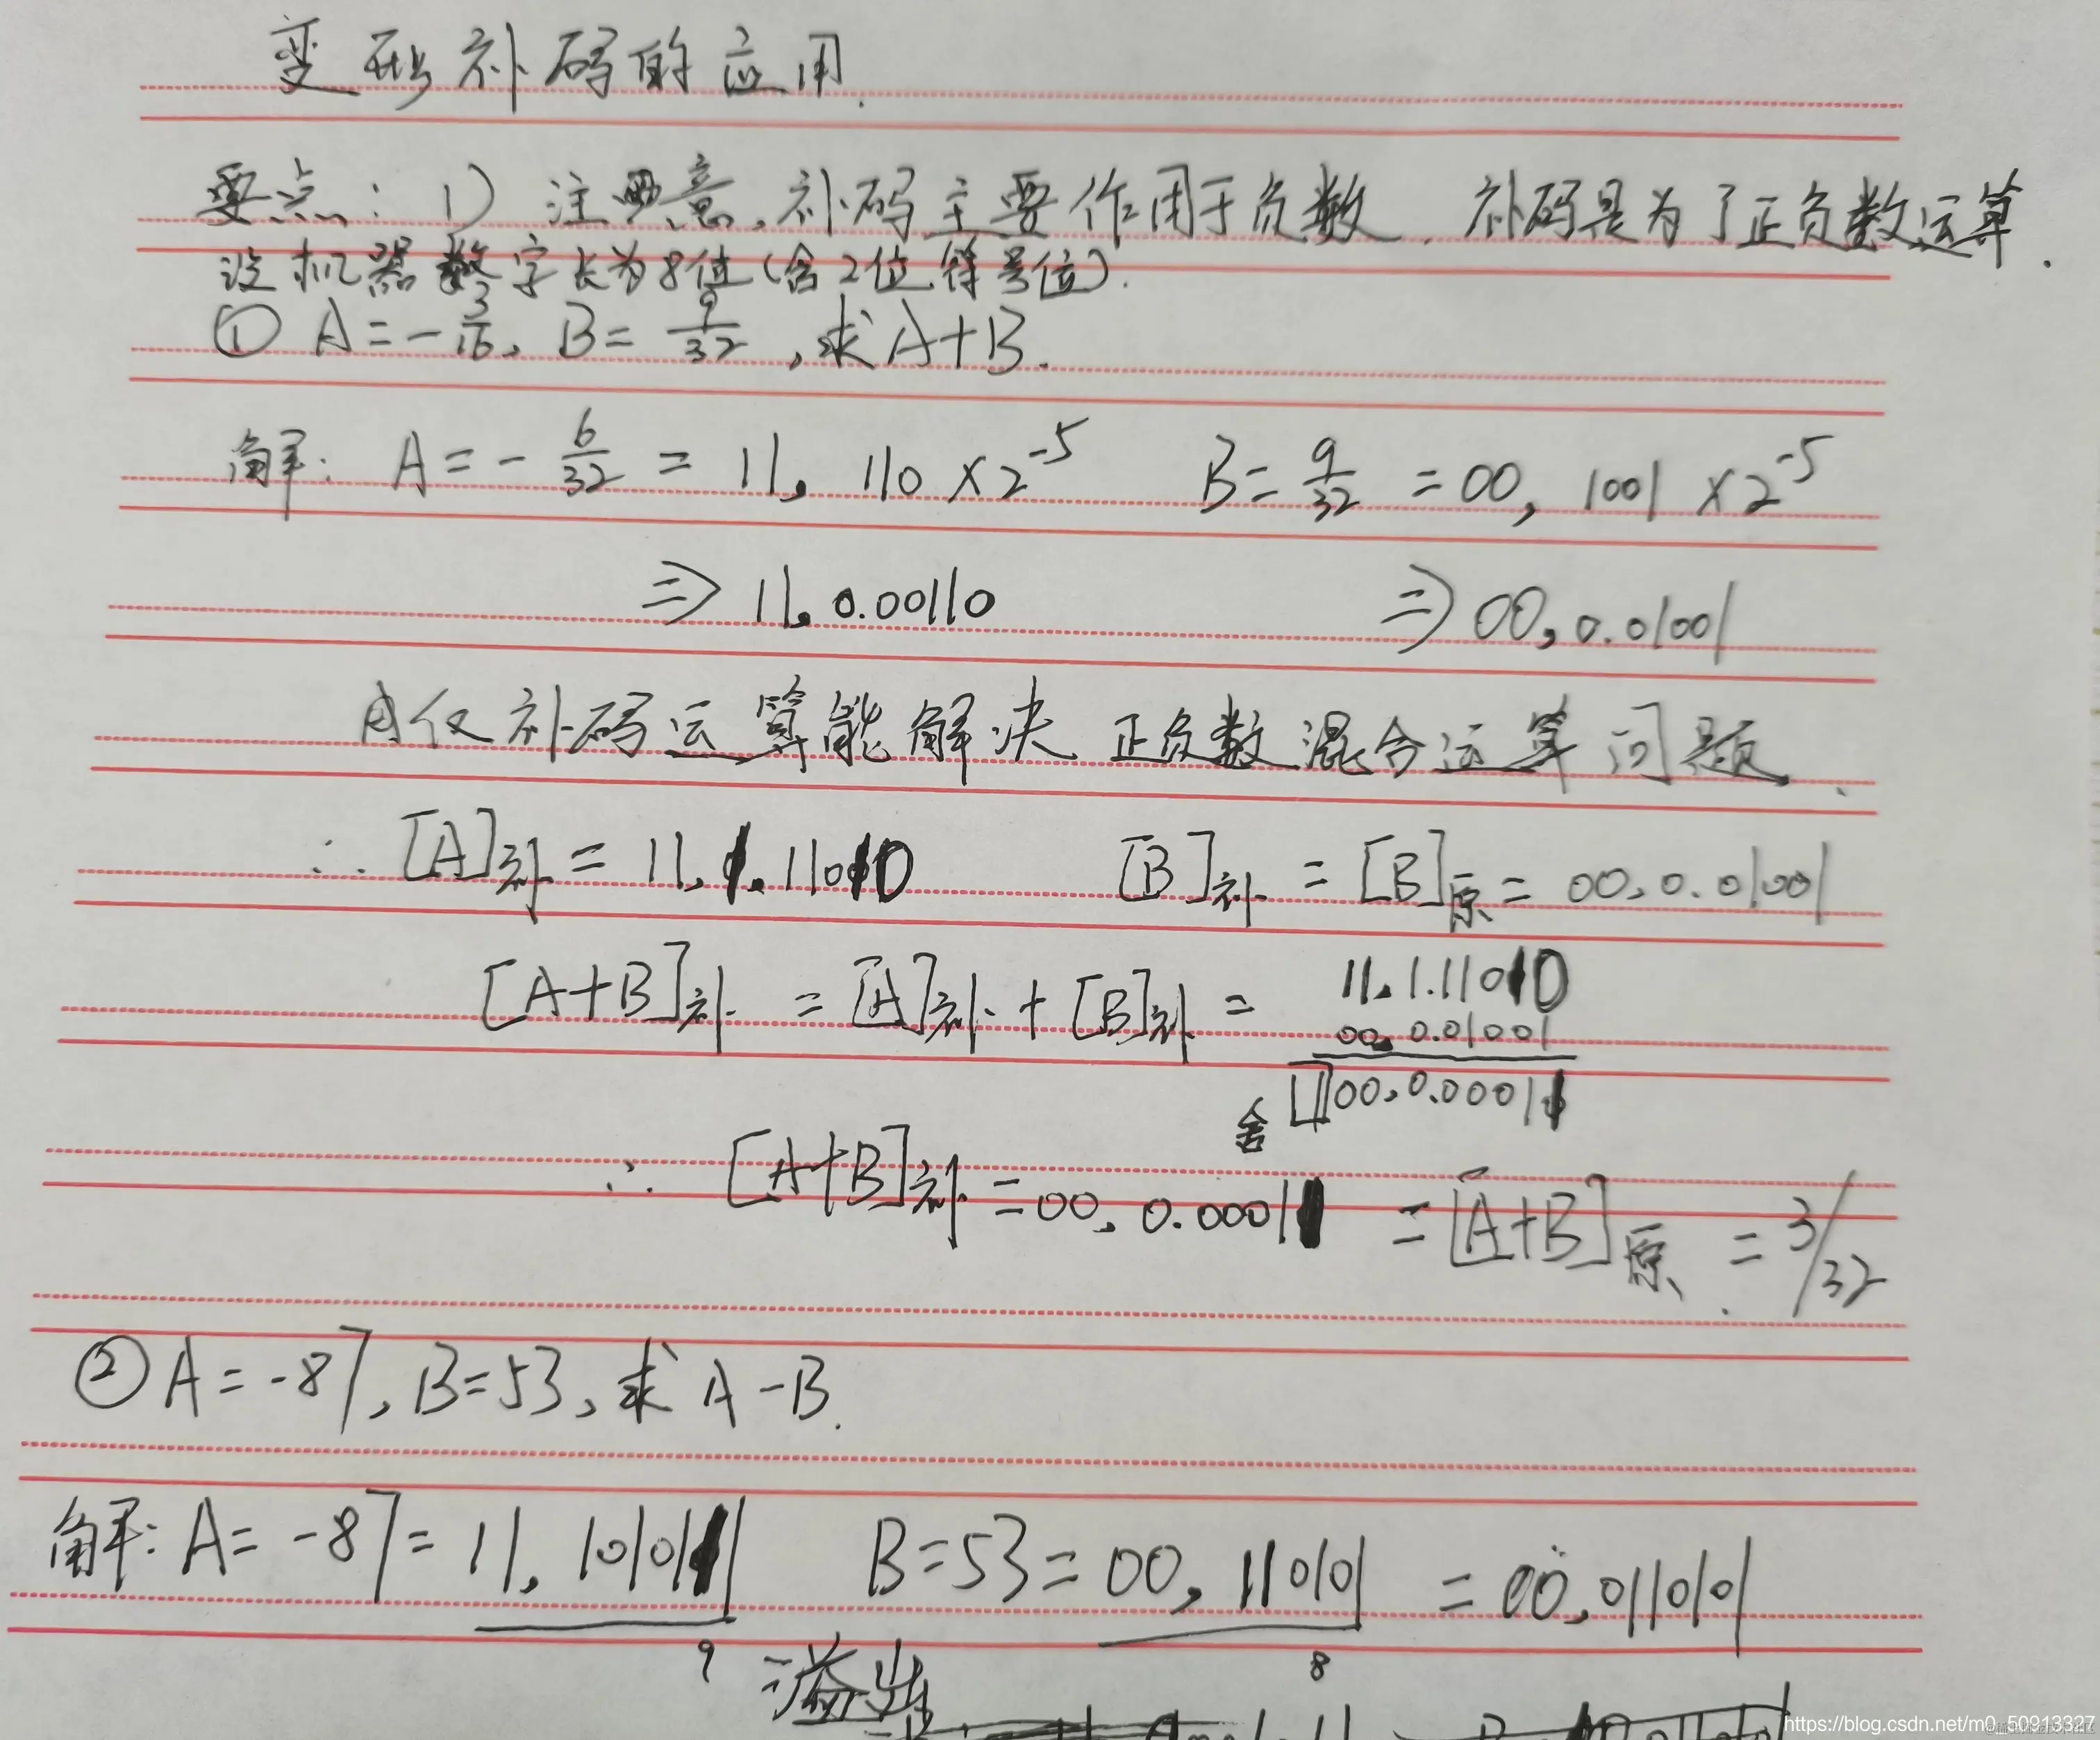 变形补码的应用.
要点: 1) 注意,补码主要作用于负数. 补码是为了正负数运算.
设机器数字长为8位(含2位符号位).
① A=-3/16, B=9/32,求A+B.
解: A=-6/32=11, 110×2^-5 B=9/32=00, 1001×2^-5
⇒11, 0.00110 ⇒00, 0.01001
仅补码运算能解决正负数混合运算问题.
∴ [A]补=11,1.11010 [B]补=[B]原=00,0.01001
[A+B]补=[A]补+[B]补= 11,1.11010
00,0.01001
舍 1 00,0.00011
∴ [A+B]补=00,0.00011=[A+B]原=3/32
② A=-87,B=53,求A-B.
解: A=-87=11,1010111 B=53=00,110101=00,0110101
9 溢出 8
https://blog.csdn.net/m0_50913327